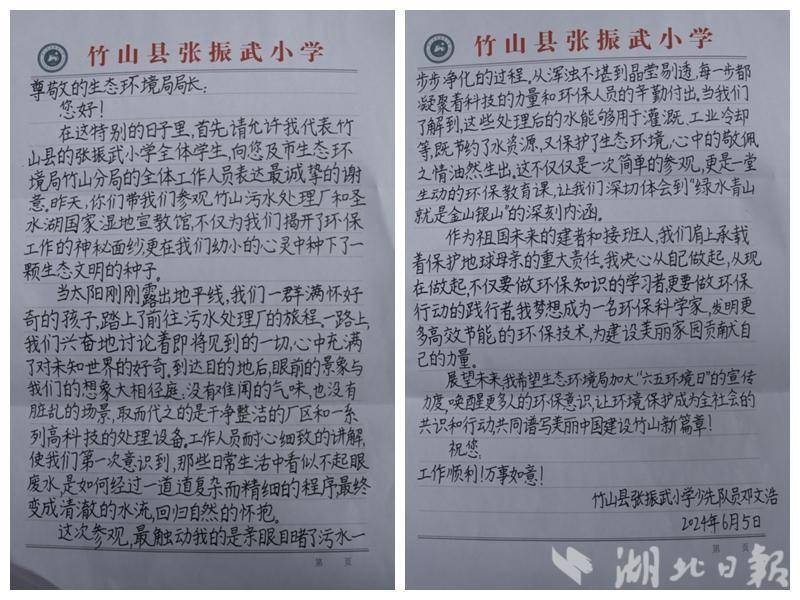 竹山县张振武小学
尊敬的生态环境局局长：
您好！
在这特别的日子里，首先请允许我代表竹
山县的张振武小学全体学生，向您及市生态环
境局竹山分局的全体工作人员表达最诚挚的谢
意。昨天，你们带我们参观，竹山污水处理厂和圣
水湖国家湿地宣教馆，不仅为我们揭开了环保
工作的神秘面纱更在我们幼小的心灵中种下了一
颗生态文明的种子。
当太阳刚刚露出地平线，我们一群满怀好
奇的孩子，踏上了前往污水处理厂的旅程。一路上，
我们兴奋地讨论着即将见到的一切，心中充满
了对未知世界的好奇。到达目的地后，眼前的景象与
我们的想象大相径庭。没有难闻的气味，也没有
脏乱的场景，取而代之的是干净整洁的厂区和一系
列高科技的处理设备。工作人员耐心细致的讲解，
使我们第一次意识到，那些日常生活中看似不起眼
废水，是如何经过一道道复杂而精细的程序，最终
变成清澈的水流，回归自然的怀抱。
这次参观，最触动我的是亲眼目睹了污水一
第 页
竹山县张振武小学
步步净化的过程。从浑浊不堪到晶莹剔透，每一步都
凝聚着科技的力量和环保人员的辛勤付出。当我们
了解到，这些处理后的水能够用于灌溉、工业冷却
等，既节约了水资源，又保护了生态环境，心中的敬佩
之情油然生出。这不仅仅是一次简单的参观，更是一堂
生动的环保教育课，让我们深切体会到“绿水青山
就是金山银山”的深刻内涵。
作为祖国未来的建者和接班人，我们肩上承载
着保护地球母亲的重大责任。我决心从自己做起，从现
在做起，不仅要做环保知识的学习者，更要做环保
行动的践行者。我梦想成为一名环保科学家，发明更
多高效节能，的环保技术，为建设美丽家园贡献自
己的力量。
展望未来，我希望生态环境局加大“六五环境日”的宣传
力度，唤醒更多人的环保意识，让环境保护成为全社会的
共识和行动共同谱写美丽中国建设竹山新篇章！
祝您：
工作顺利！万事如意！
竹山县张振武小学少先队员邓文浩
2024年6月5日
第 页
湖北日报